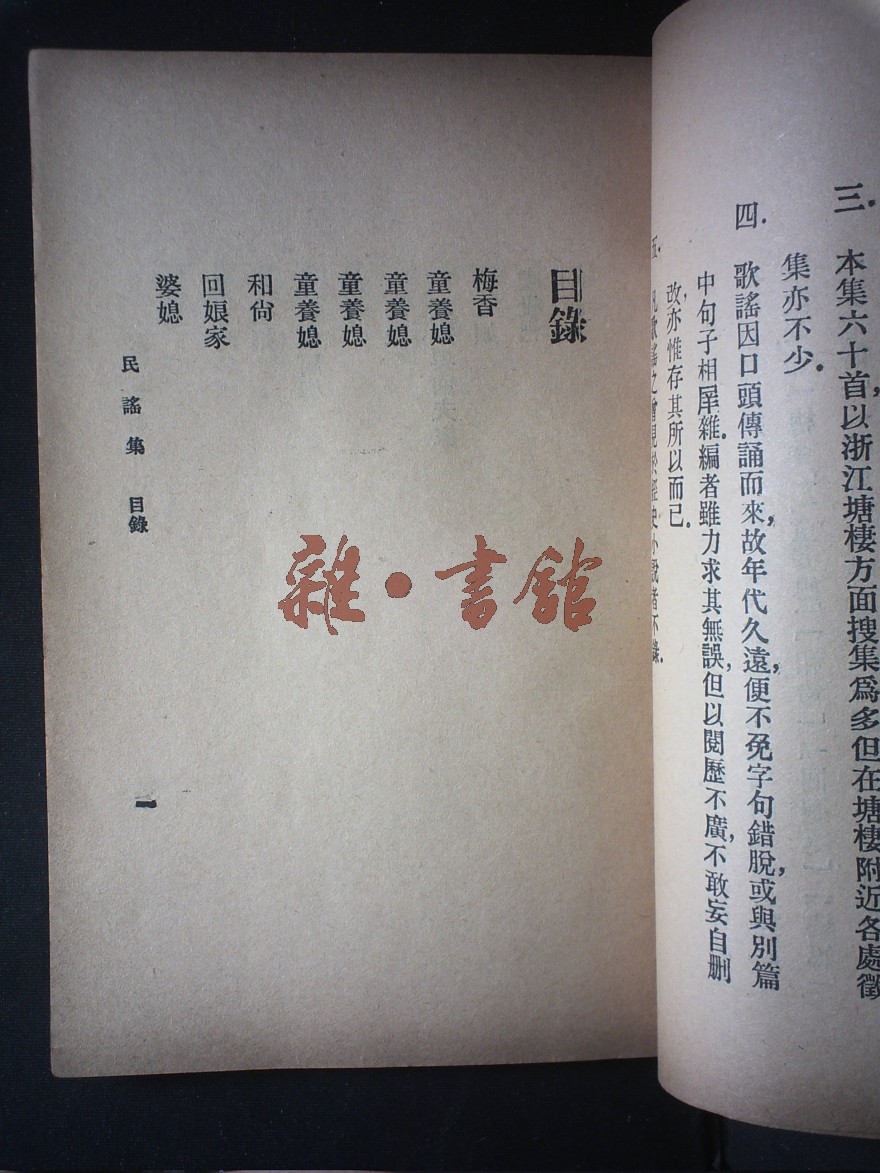 三．本集六十首，以浙江塘棲方面搜集爲多但在塘棲附近各處徵
集亦不少．
四．歌謠因口頭傳誦而來，故年代久遠，便不免字句錯脫，或與別篇
中句子相犀雜．編者雖力求其無誤，但以閱歷不廣，不敢妄自刪
改，亦惟存其所以而已．
五．凡歌謠之曾見於歷史小說者不錄．
目錄
梅香
童養媳
童養媳
童養媳
童養媳
和尙
回娘家
婆媳
民謠集 目錄
一
雜·書館